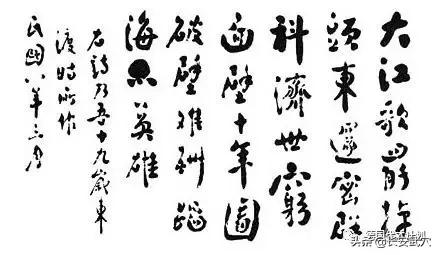 大江歌罷掉
頭東邃密群
科濟世窮
面壁十年圖
破壁難酬蹈
海亦英雄
右詩乃吾十九歲東
渡時所作
民國八年三月
头条@长安